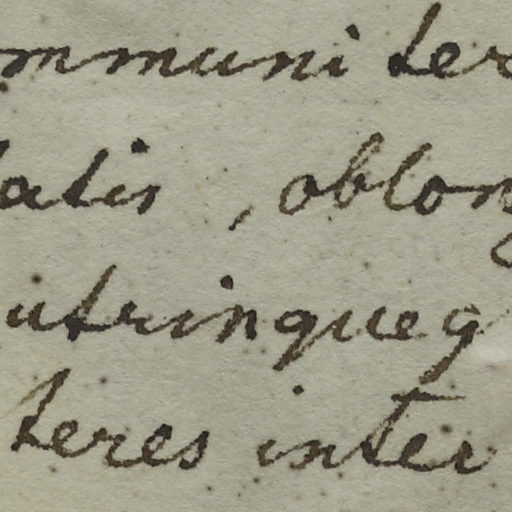 mmuni ter
latis, oblon
utrinque g
teres inter